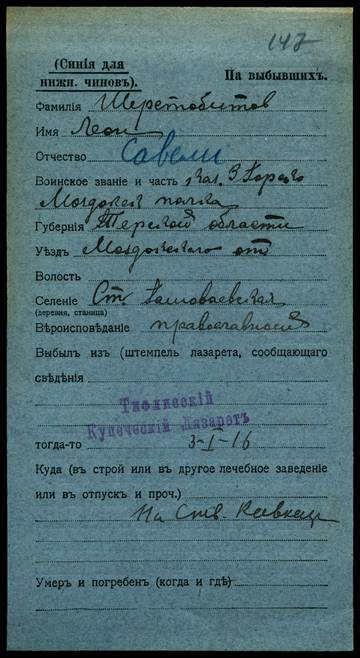 147
(Синія для
нижн. чиновъ).
На выбывшихъ.
Фамилія Шерстобитов
Имя Леон
Отчество Савели
Воинское званіе и часть каз. 3 Горско
Моздокск полка
Губернія Терской области
Уѣздъ Моздокского от
Волость
Селеніе Ст.
(деревня, станица)
Вѣроисповѣданіе православное
Выбылъ изъ (штемпель лазарета, сообщающаго
свѣдѣнія
Тифлисскій
Купеческій Лазаретъ
тогда-то 3-I-16
Куда (въ строй или въ другое лечебное заведеніе
или въ отпускъ и проч.)
На Кавказ
Умеръ и погребенъ (когда и гдѣ)